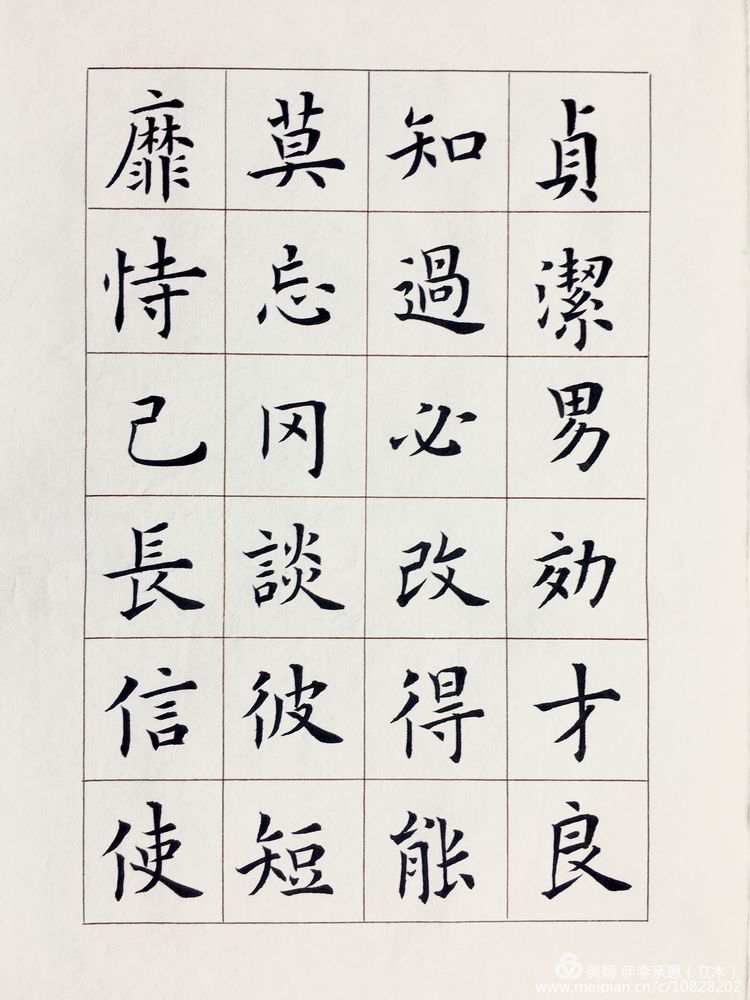 貞潔男効才良
知過必改得能
莫忘罔談彼短
靡恃己長信使
美篇 @李亲惠(立木)
www.meipian.cn/c/10828202